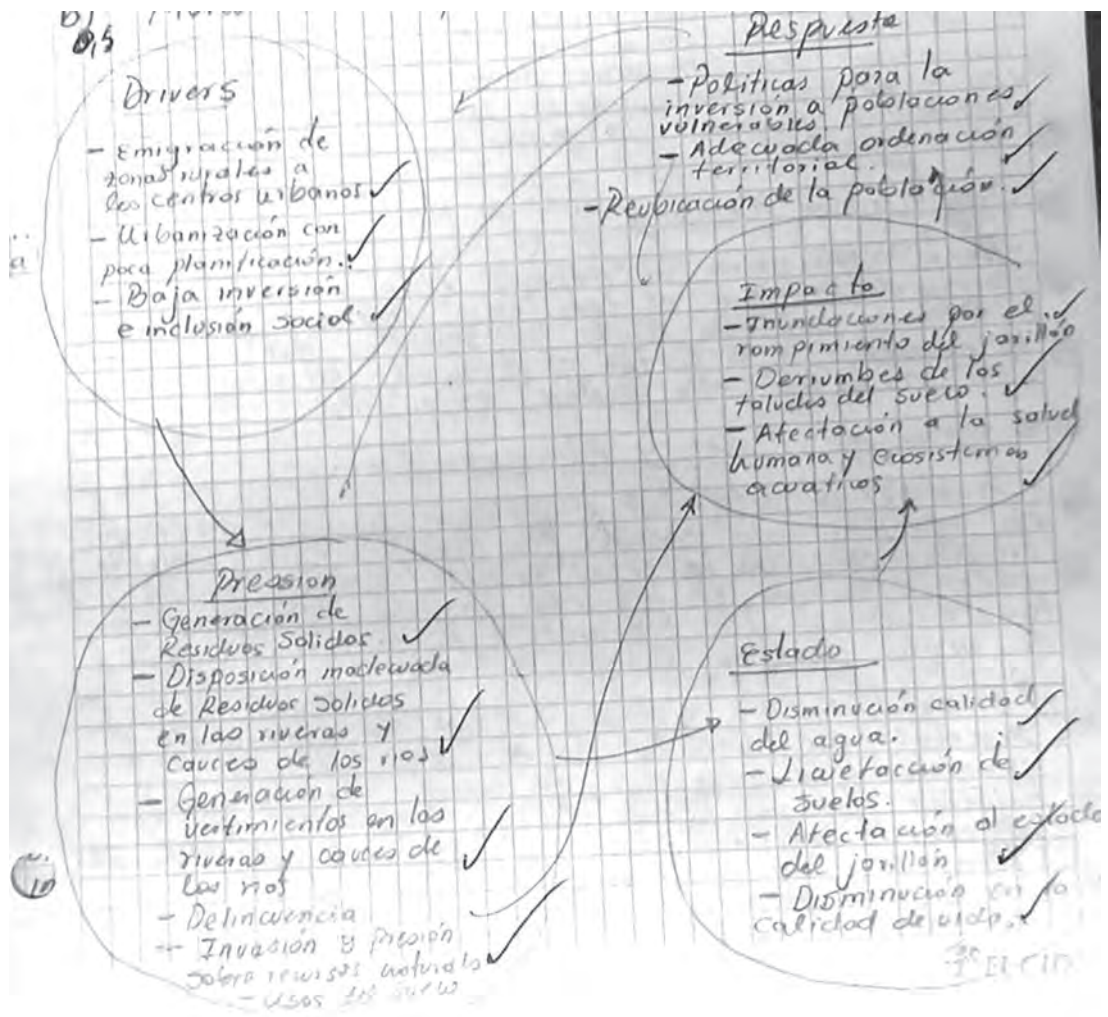 B)
0,5
Drivers
- Emigración de
zonas rurales a
los centros urbanos
- Urbanización con
poca planificación.
- Baja inversión
e inclusión social
Respuesta
- Politicas para la
inversión a poblaciones
vulnerables
- Adecuada ordenación
territorial.
- Reubicación de la población.
Impacto
- Inundaciones por el
rompimiento del jarillón
- Derrumbes de los
taludes del suelo.
- Afectación a la salud
humana y ecosistemas
acuaticos
Presion
- Generación de
Residuos Solidos
- Disposición inadecuada
de Residuos Solidos
en las riveras y
cauces de los rios
- Generación de
vertimientos en las
riveras y cauces de
los rios
- Delincuencia
- Invasión y presión
sobre recursos naturales
- Usos del suelo
Estado
- Disminución calidad
del agua.
- Licuefacción de
suelos.
- Afectación al estado
del jarillón
- Disminución en la
calidad de vida.